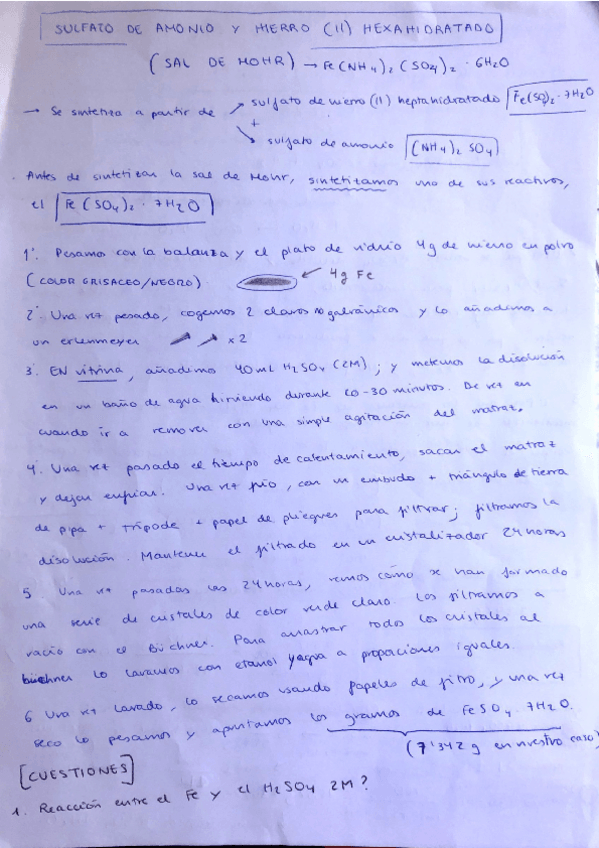 SULFATO DE AMONIO Y HIERRO (II) HEXAHIDRATADO
(SAL DE MOHR) → Fe(NH4)2(SO4)2 · 6H2O
→ Se sintetiza a partir de sulfato de hierro (II) heptahidratado Fe(SO4)2 · 7H2O
+
sulfato de amonio (NH4)2 SO4
Antes de sintetizar la sal de Mohr, sintetizamos uno de sus reactivos,
el Fe(SO4)2 · 7H2O
1º. Pesamos con la balanza y el plato de vidrio 4g de hierro en polvo
(COLOR GRISACEO/NEGRO) ← 4g Fe
2º. Una vez pesado, cogemos 2 clavos no galvánicos y lo añadimos a
un erlenmeyer x2
3º. EN vitrina, añadimos 40mL H2SO4 (2M); y metemos la disolución
en un baño de agua hirviendo durante 20-30 minutos. De vez en
cuando ir a remover con una simple agitación del matraz.
4º. Una vez pasado el tiempo de calentamiento, sacar el matraz
y dejar enfriar. Una vez frío, con un embudo + triángulo de tierra
de pipa + trípode + papel de pliegues para filtrar; filtramos la
disolución. Mantener el filtrado en un cristalizador 24 horas
5. Una vez pasadas las 24 horas, vemos cómo se han formado
una serie de cristales de color verde claro. Los filtramos a
vacío con el Büchner. Para arrastrar todos los cristales al
büchner lo lavamos con etanol y agua a proporciones iguales.
6 Una vez lavado, lo secamos usando papeles de filtro, y una vez
seco lo pesamos y apuntamos los gramos de FeSO4 · 7H2O.
(7'342 g en nuestro caso)
[CUESTIONES]
1. Reacción entre el Fe y el H2SO4 2M?